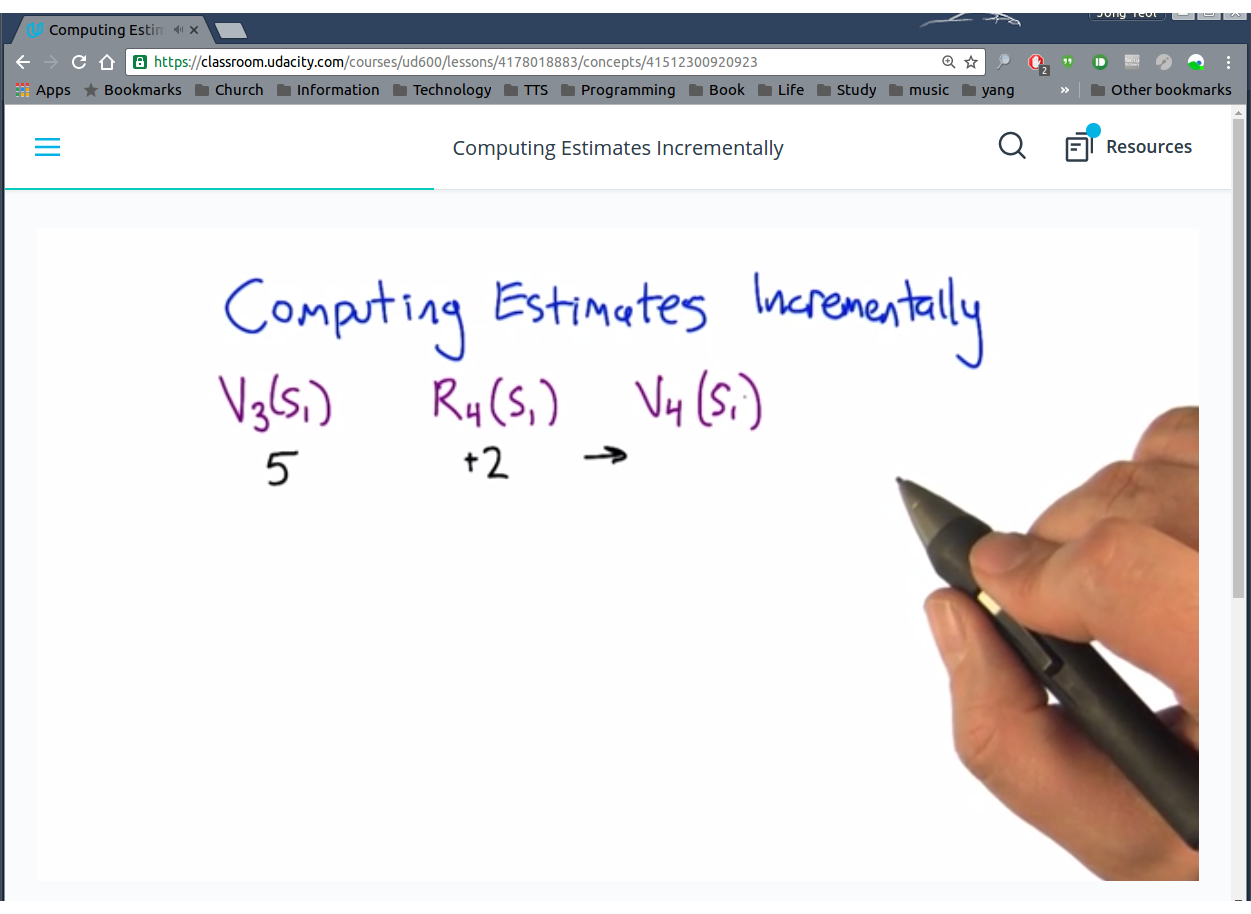 Computing Estin
https://classroom.udacity.com/courses/ud600/lessons/4178018883/concepts/41512300920923
2
Apps Bookmarks Church Information Technology TTS Programming Book Life Study music yang » Other bookmarks
Computing Estimates Incrementally
Resources
Computing Estimates Incrementally
V₃(S₁) R₄(S₁) V₄(S₁)
5 +2 →